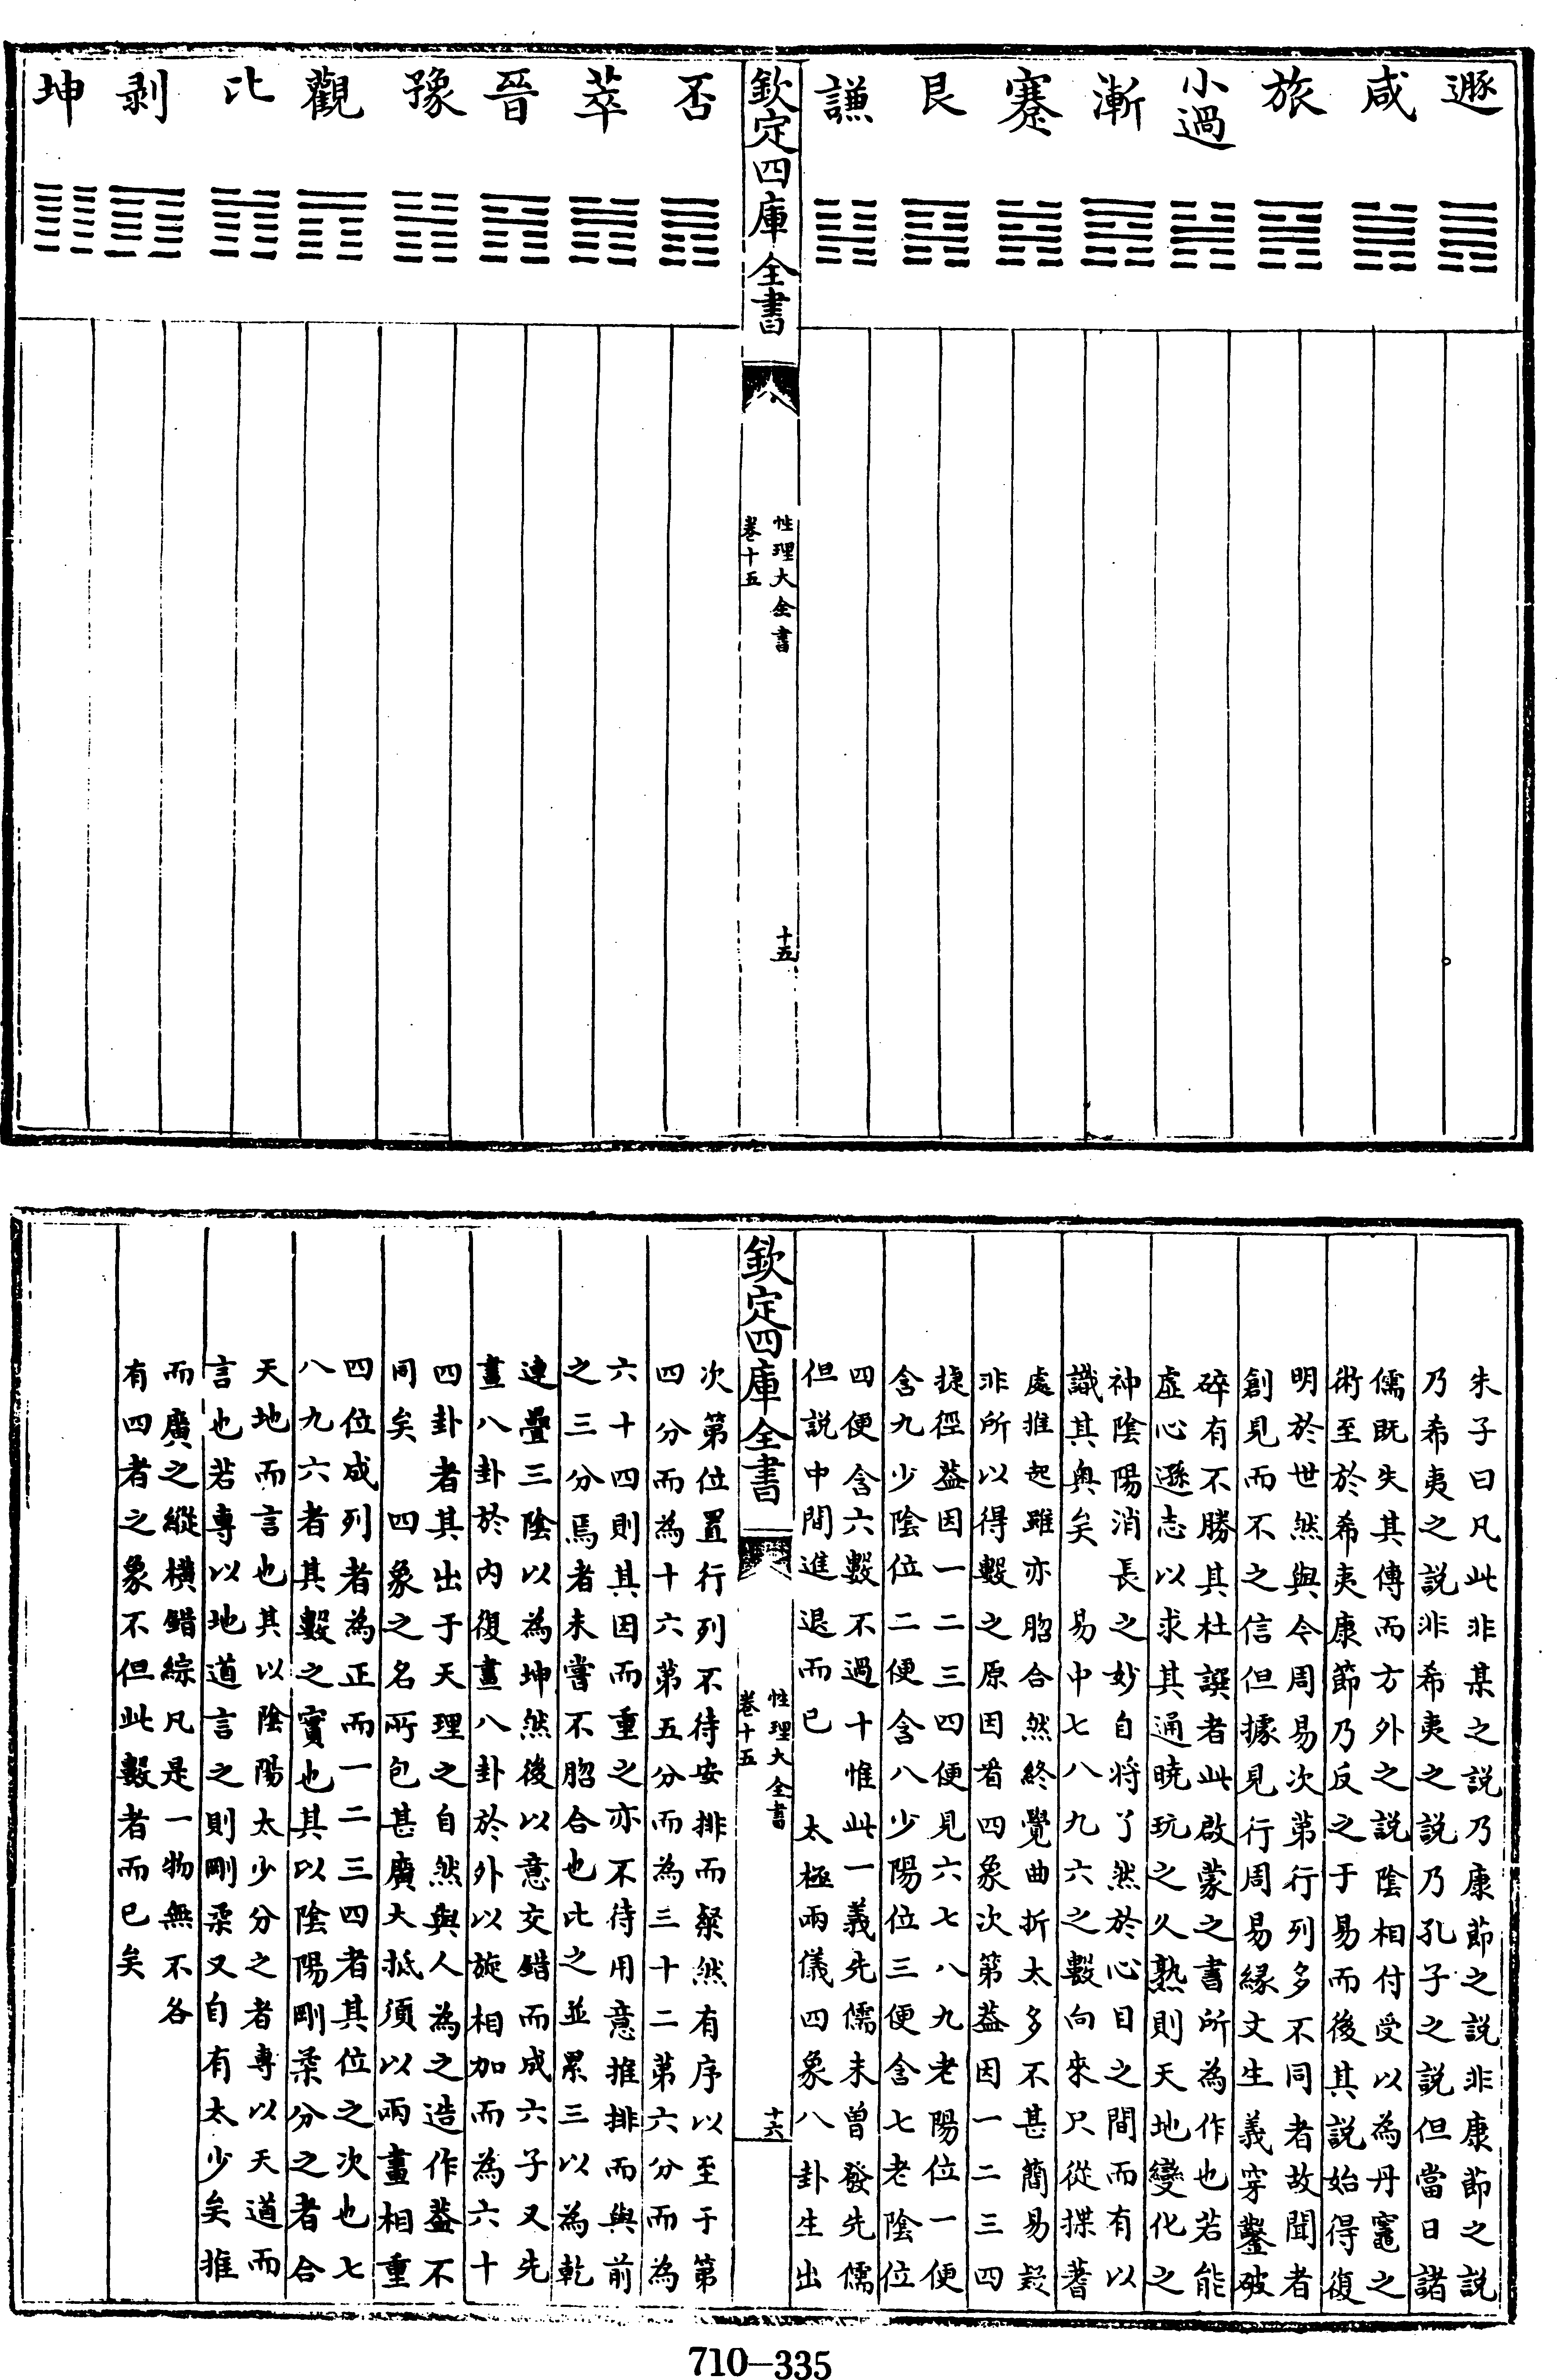 遯
咸
旅
小過
漸
蹇
艮
謙
欽定四庫全書
性理大全書
卷十五
十五
否
萃
晉
豫
觀
比
剥
坤
朱子曰凡此非某之説乃康節之説非康節之説
乃希夷之説非希夷之説乃孔子之説但當日諸
儒既失其傳而方外之説陰相付受以為丹竈之
術至於希夷康節乃反之于易而後其説始得復
明於世然與今周易次第行列多不同者故聞者
創見而不之信但據見行周易縁文生義穿鑿破
碎有不勝其杜譔者此啟蒙之書所為作也若能
虚心遜志以求其通曉玩之久熟則天地變化之
神陰陽消長之妙自將了然於心目之間而有以
識其奥矣 易中七八九六之數向來只從揲蓍
處推起雖亦脗合然終覺曲折太多不甚簡易疑
非所以得數之原因看四象次第葢因一二三四
捷徑葢因一二三四便見六七八九老陽位一便
含九少陰位二便含八少陽位三便含七老陰位
四便含六數不過十惟此一義先儒未曽發先儒
但説中間進退而已 太極兩儀四象八卦生出
欽定四庫全書
性理大全書
卷十五
十六
次第位置行列不待安排而粲然有序以至于第
四分而為十六第五分而為三十二第六分而為
六十四則其因而重之亦不待用意推排而與前
之三分焉者未嘗不脗合也比之並累三以為乾
連疊三陰以為坤然後以意交錯而成六子又先
畫八卦於内復畫八卦於外以旋相加而為六十
四卦者其出于天理之自然與人為之造作葢不
同矣 四象之名所包甚廣大抵須以兩畫相重
四位成列者為正而一二三四者其位之次也七
八九六者其數之實也其以陰陽剛柔分之者合
天地而言也其以陰陽太少分之者專以天道而
言也若專以地道言之則剛柔又自有太少矣推
而廣之縱横錯綜凡是一物無不各
有四者之象不但此數者而已矣
710-335